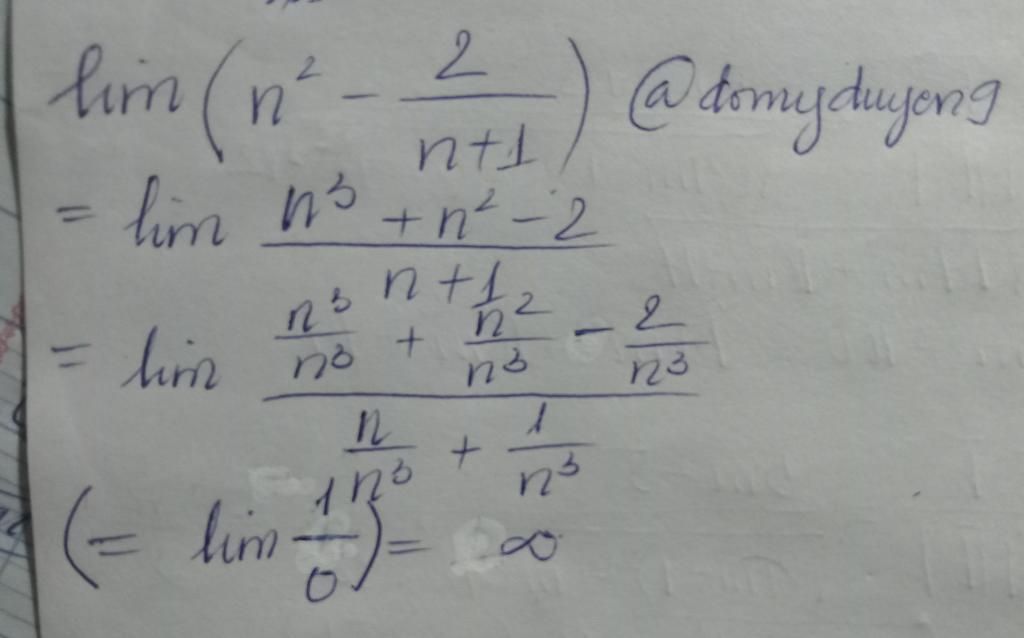 lim (n² - 2/(n+1)) @domyduyeng
= lim (n³ + n² - 2)/(n+1)
= lim (n³/n³ + n²/n³ - 2/n³)/(n/n³ + 1/n³)
(= lim 1/0) = ∞